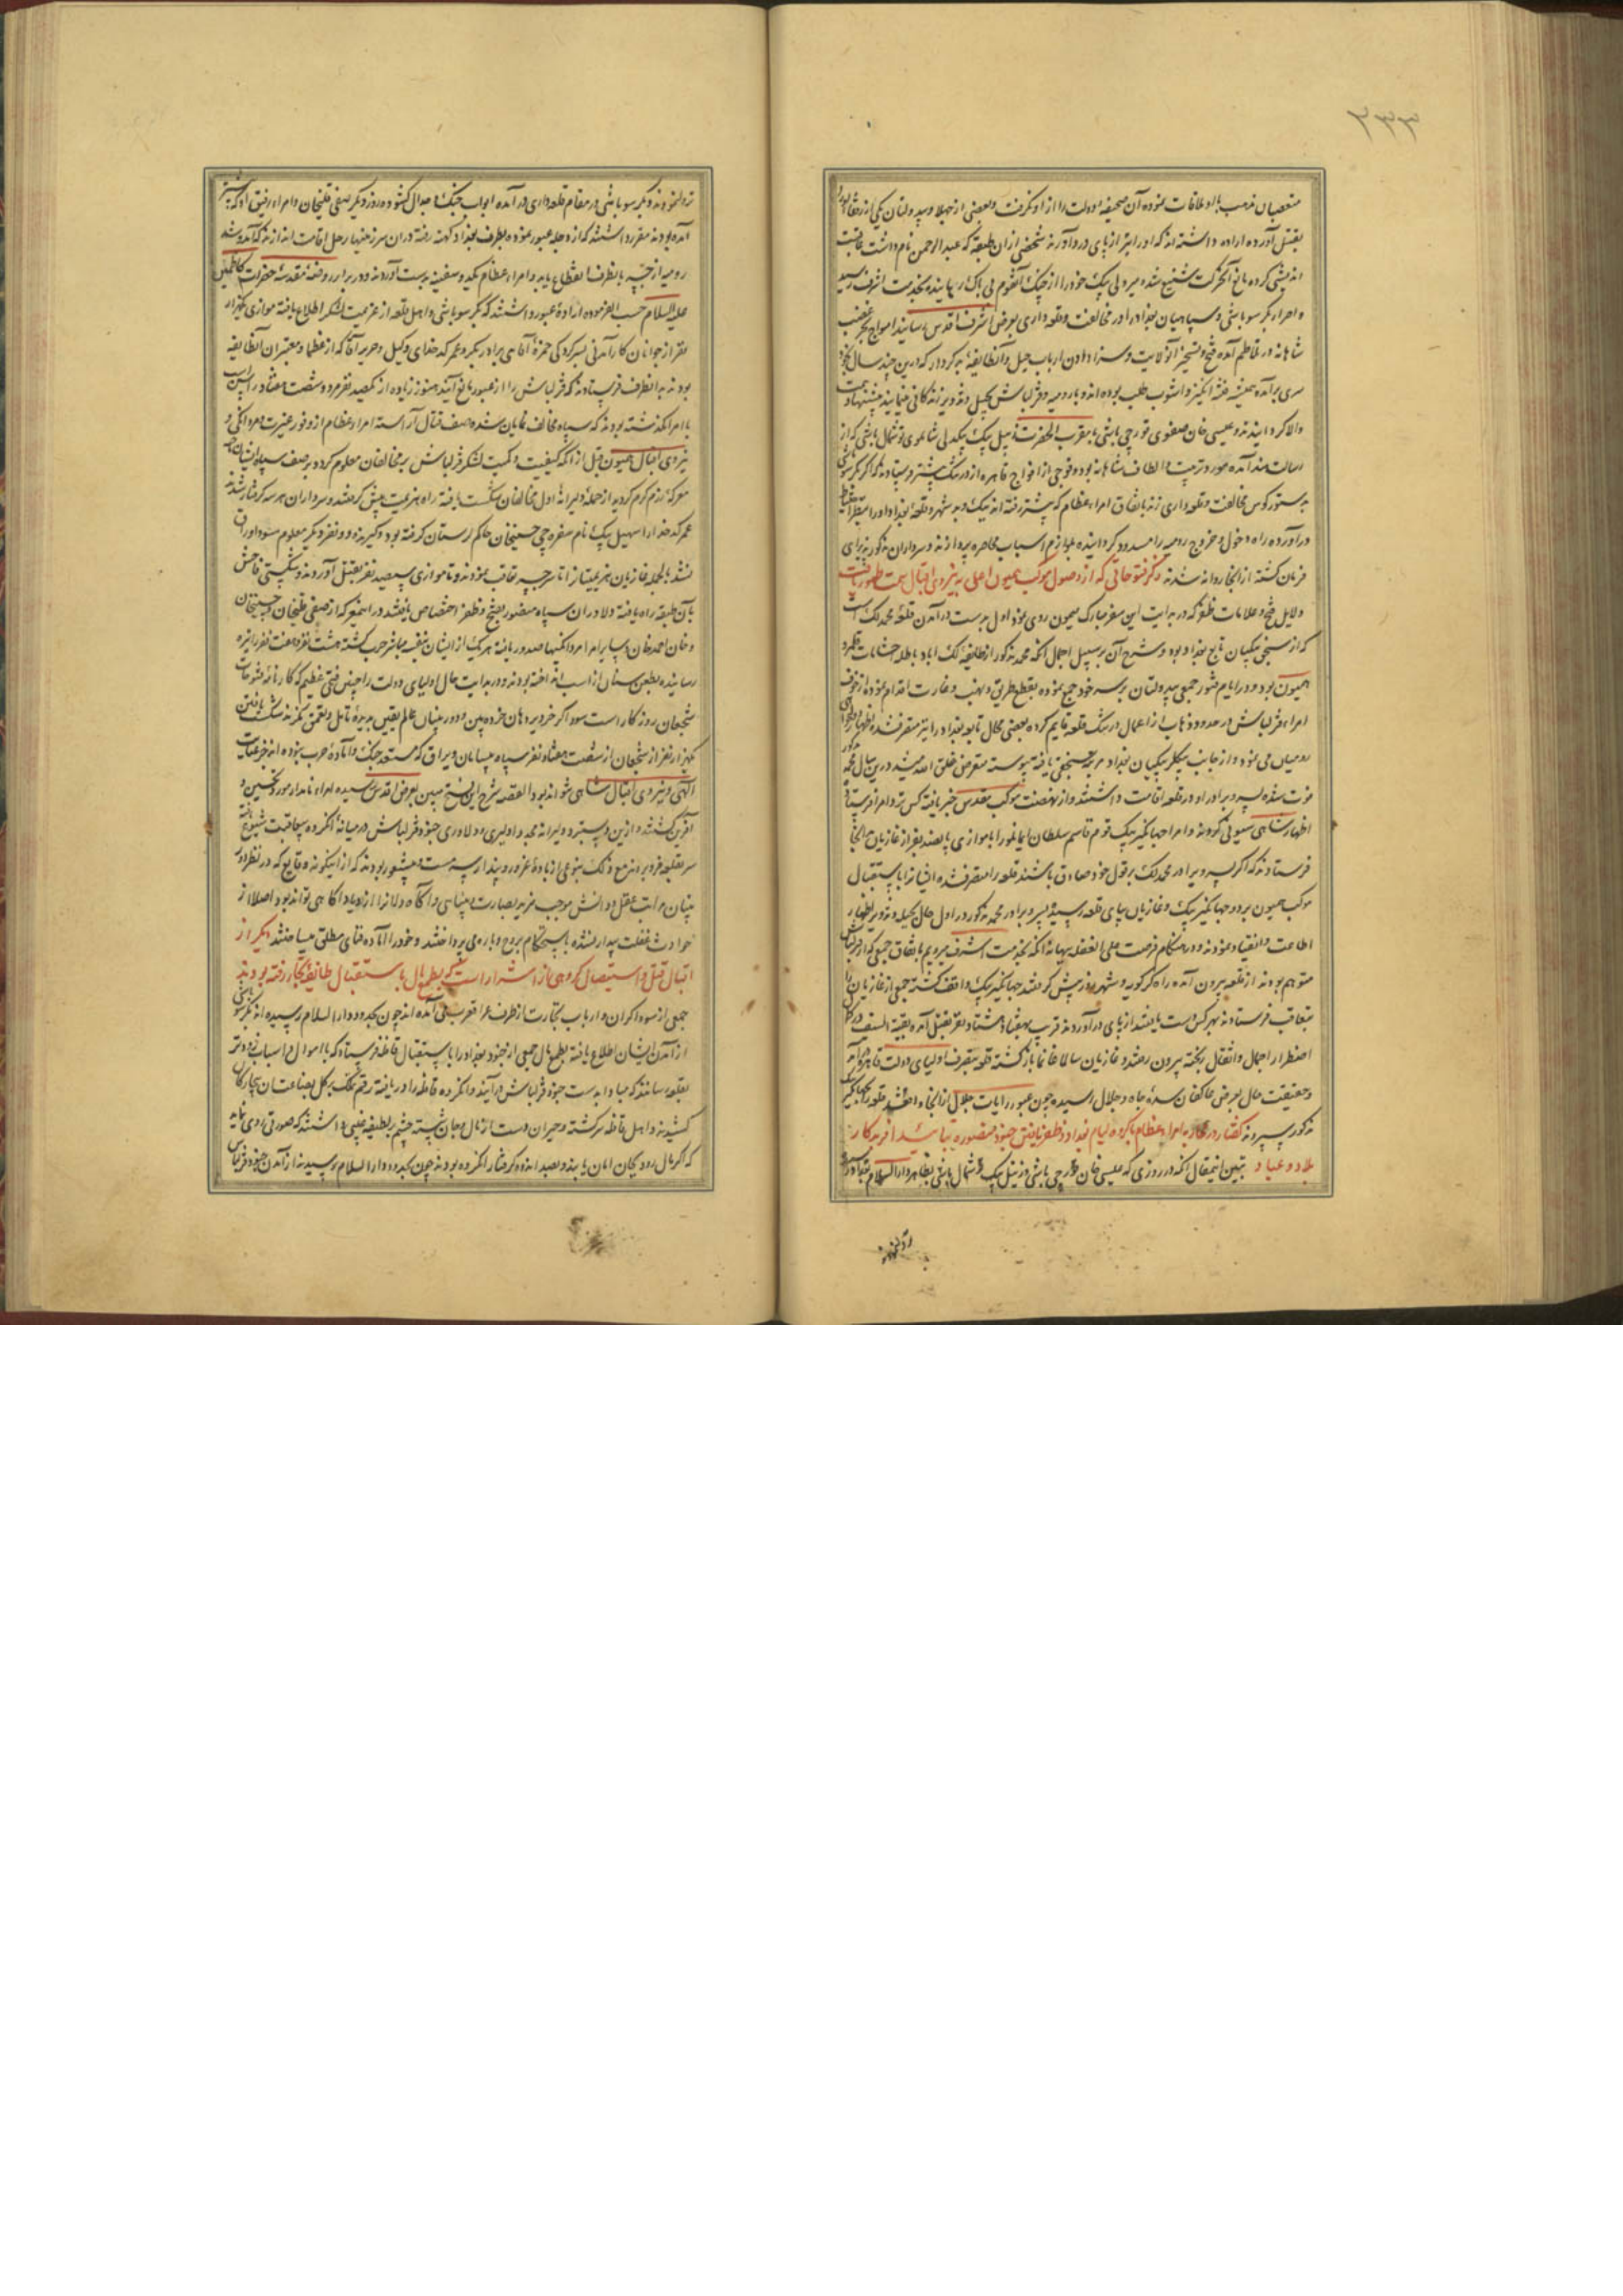 ۳۳۳
متعصبان مذهب با او ملاقات نموده آن صحیفه دولت را از او نگرفت و بعضی از جهلا و بیدولتان یکی از رفقا
بقتل آورده اراده داشته اند که او را نیز از پای درآورند شخصی از آن طبقه که عبدالرحمن نام داشت عاقبت
اندیشی کرده مانع آن حرکت شنیع شده میر ولی بیک خود را از چنک آن قوم بی باک رهانیده بخدمت اشرف رسید
و اصرار بکر سوباشی و سپاهیان بغداد را در مخالفت و قلعه داری بعرض اشرف اقدس رسانید امواج بحر غضب
شاهانه در تلاطم آمده فتح و تسخیر آن ولایت و سزا دادن ارباب حیل و آن طایفه بد کردار که درین چند سال
سری برآمده همیشه فتنه انگیز و آشوب طلب بوده اند و با رومیه و قزلباش بحیل و تزویر زندگانی مینمایند پیشنهاد همت
والا گردانیدند و عیسی خان صفوی قورچی باشی با مقرب الحضرت زینل بیک بیکدلی شاملو توشمال باشی که از
رسالت هند آمده مورد تربیت و الطاف شاهانه بود و فوجی از افواج قاهره از درتنک پیشتر فرستادند که اگر بکر سوباشی
بدستور کوس مخالفت و قلعه داری زند باتفاق امراء عظام که پیشتر رفته اند نیک و بد شهر و قلعه بغداد را
درآورده راه دخول و خروج رومیه را مسدود گردانیده بلوازم اسباب محاصره پردازند و سرداران مذکور پذیرای
فرمان گشته از آنجا روانه شدند ذکر فتوحاتی که از وصول موکب همیون اعلی به نیروی اقبال سمت ظهور یافت
دلایل فتح و علامات ظفر که در بدایت این سفر مبارک میمون روی نمود اول بدست درآمدن قلعه محمد لک است
که از سنجق بیکیان تابع بغداد بود و شرح آن بر سبیل اجمال آنکه محمد مذکور از طایفه لک اباد باطله احشامات قلمرو
همیون بود و در ایام فتور جمعی بیدولتان بر سر خود جمع نموده بقطع طریق و نهب و غارت اقدام نموده از خوف
امراء قزلباش در حدود ذهاب از اعمال درتنک قلعه قایم کرده بعضی محال تابع بغداد را نیز متصرف شده اظهار
رومیان می نمود و از جانب بیکلربیکیان بغداد مرتبه سنجقی یافته پیوسته متعرض خلق الله میشد درین سال محمد
فوت شده پسر و برادر او در قلعه اقامت داشتند و از نهضت موکب مقدس خبر یافته کس نزد امرا فرستاده
اظهار شاهی سیونی کردند و امرا جهانگیر بیک قوم قاسم سلطان ایمانلو را با موازی پانصد نفر از غازیان بدانجا
فرستادند که اگر پسر و برادر محمد لک بر قول خود صادق باشند قلعه را متصرف شده ایشانرا باستقبال
موکب همیون برد و جهانگیر بیک و غازیان بپای قلعه رسیده پسر و برادر محمد مذکور در اول حال بحیله و تزویر اظهار
اطاعت و انقیاد نموده در هنگام فرصت علی الغفله ببهانه آنکه بخدمت اشرف میرویم باتفاق جمعی که از قزلباش
متوهم بودند از قلعه بیرون آمده راه کرکویه و شهرزور پیش گرفتند جهانگیر بیک واقف گشته جمعی از غازیان را
بتعاقب فرستادند بهر کس دست یافتند از پای درآوردند قریب بهفتاد هشتاد نفر بقتل آمده بقیة السیف در کمال
اضطرار احمال و اثقال ریخته بیرون رفتند و غازیان سالما غانما بازگشته قلعه بتصرف اولیای دولت قاهره درآمد
و حقیقت حال بعرض عاکفان سده جاه و جلال رسیده چون عبور رایات جلال از آنجا واقع شد قلعه را بجهانگیر بیک
مذکور سپردند گفتار در محاربه امراء عظام با گروه لیام بغداد و ظفر یافتن جنود منصوره بتائید آفریدگار
بلاد و عباد تبیین اینمقال آنکه در روزی که عیسی خان قورچی باشی و زینل بیک توشمال باشی بظاهر دارالسلام بغداد رسیده
نزول نمودند
نزول نمودند و بکر سوباشی در مقام قلعه داری درآمده ابواب جنک و جدال گشوده روز دیگر صفی قلیخان و امراء رفیق او که پیشتر
آمده بودند مقرر داشتند که از دجله عبور نموده بطرف بغداد کهنه رفته در آن سرزمینها رحل اقامت اندازند که آمد و شد
رومیه از جسر بانطرف انقطاع یابد و امراء عظام کمید و سفینه بدست آوردند و در برابر روضه مقدسه حضرات کاظمین
علیه السلام حسب الفرموده اراده عبور داشتند که بکر سوباشی و اهل قلعه از عزیمت لشکر اطلاع یافته موازی یکهزار
نفر از جوانان کارآمدنی بسرکردگی حمزه آقا و برادر بکر و عمر کدخدای وکیل و حریر آقا که از عظما و معتبران آن طایفه
بودند بدانطرف فرستادند که قزلباش را از عبور مانع آیند هنوز زیاده از یکصد نفر مرد و شصت هفتاد راس اسب
با امرا نگذشته بودند که سپاه مخالف نمایان شده صف قتال آراستند امراء عظام از وفور غیرت و مردانگی و
نیروی اقبال همیون قبل از آنکه کیفیت و کمیت لشکر قزلباش بر مخالفان معلوم گردد بر صف سپاه ایشان
معرکه رزم گرم گردید از حمله دلیرانه اول مخالفان شکست یافته راه هزیمت پیش گرفتند و سرداران هر سه گرفتار شدند
عمر کدخدا را سهیل بیک نام سفره چی حسینخان حاکم لرستان گرفته بود و گیرنده دو نفر دیگر معلوم نشد
نشد بالجمله غازیان هزیمتیانرا تا سر جسر تعاقب نمودند و تا موازی سیصد نفر بقتل آوردند و شکستی فاحش
بآن طبقه راه یافته دلاوران سپاه منصور بفتح و ظفر اختصاص یافتند در این معرکه از صفی قلیخان و حسینخان
و خان احمدخان و سایر امرا مردانگیها صدور یافته هر یک از ایشان بنفسه مباشر حرب گشته هشت نفر و هفت نفر را نیزه
رسانیده بطعن سنان از اسب انداخته بودند و در بدایت حال اولیای دولت را چنین فتحی عظیم که کارنامه فتوحات
شجعان روزگار است سود اگر خرد پروردهان خرده بین و دوربینان عالم یقین بدیده تامل و تعمق نگرند شکست یافتن
یکهزار نفر از شجعان از شصت هفتاد نفر سپاه بیسامان و یراق که مستعد جنک و آماده حرب نبوده اند جز بعنایت
الهی و نیروی اقبال شاهی نتواند بود القصه شرح این فتح مبین بعرض اقدس رسیده امراء نامدار مورد تحسین و
آفرین گشتند و ازین دستبرد دلیرانه مجددا دلیری و دلاوری جنود قزلباش در میانه آن گروه بیعاقبت شیوع یافته
سر بقلعه فرو بردند مع ذلک بنوعی از باده غرور و پندار سرمست و بیشعور بودند که از اینگونه وقایع که در نظر
بینان مرآت عقل و دانش موجب مزید بصارت و بینایی و آگاه دلانرا ازدیاد آگاهی تواند بود اصلا از
خواب غفلت بیدار نشده باستحکام بروج و باره می پرداختند و خود را آماده فنای مطلق میساختند دیگر از
اقبال قتل و استیصال گروهی از اشرار است که بطمع مال باستقبال طائفه تجار رفته بودند
جمعی از سوداگران و ارباب تجارت از طرف عراق عرب می آمده اند چون بحدود دارالسلام رسیده اند بکر سوباشی
از آمدن ایشان اطلاع یافته بطمع مال جمعی از جنود بغداد را باستقبال قافله فرستاد که با اموال و اسباب زودتر
بقلعه رسانند که مبادا بدست جنود قزلباش درآیند و آن گروه قافله را دریافته رقم تملک بر کل بضاعت آن بیچارگان
کشیدند و اهل قافله سرگشته و حیران دست از مال و جان شسته چشم بر لطیفه غیبی داشتند که صورتی روی نماید
که اگر مال رود بجان امان یابند و بصد اندوه گرفتار آن گروه بودند چون بحدود دارالسلام رسیدند از آمدن جنود قزلباش